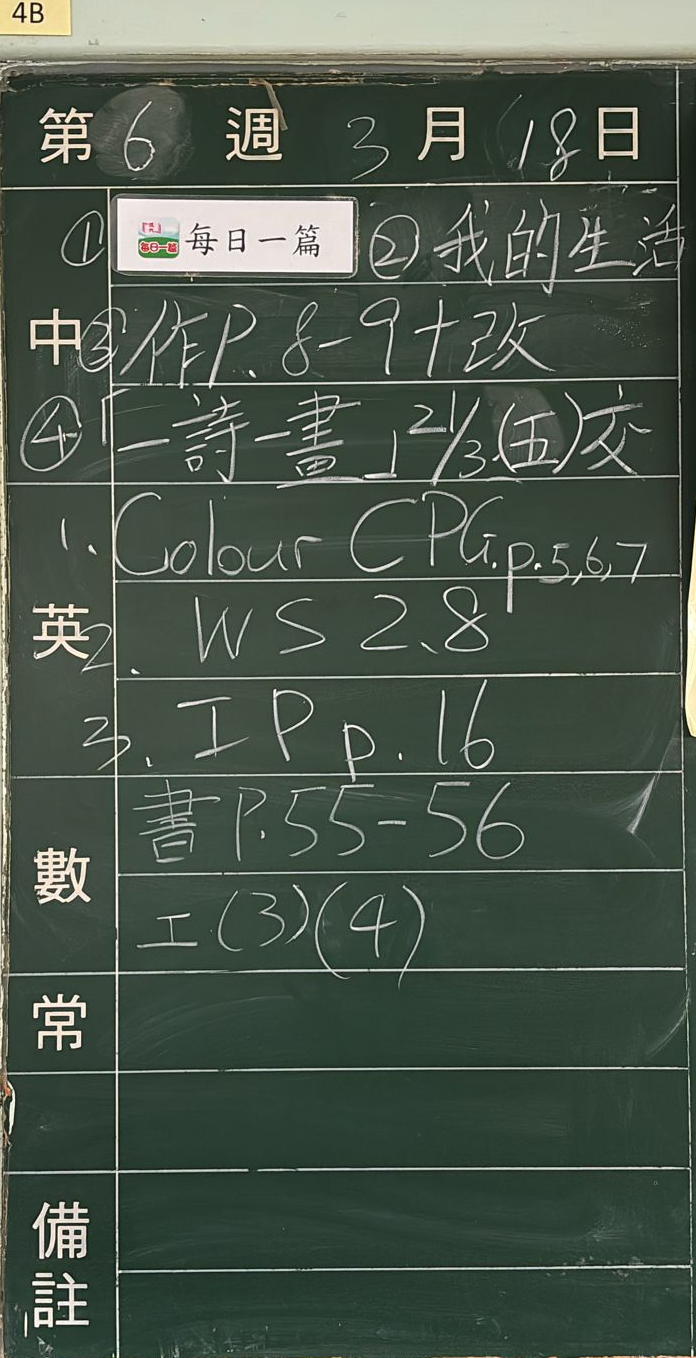 4B
第 6 週 3 月 18 日
中
① 每日一篇 ② 我的生活
③ 作P. 8-9+改
④ 「一詩一畫」21/3(五)交
英
1. Colour CPG. p.5,6,7
2. WS 2.8
3. IP p. 16
數
書P.55-56
工(3)(4)
常
備註